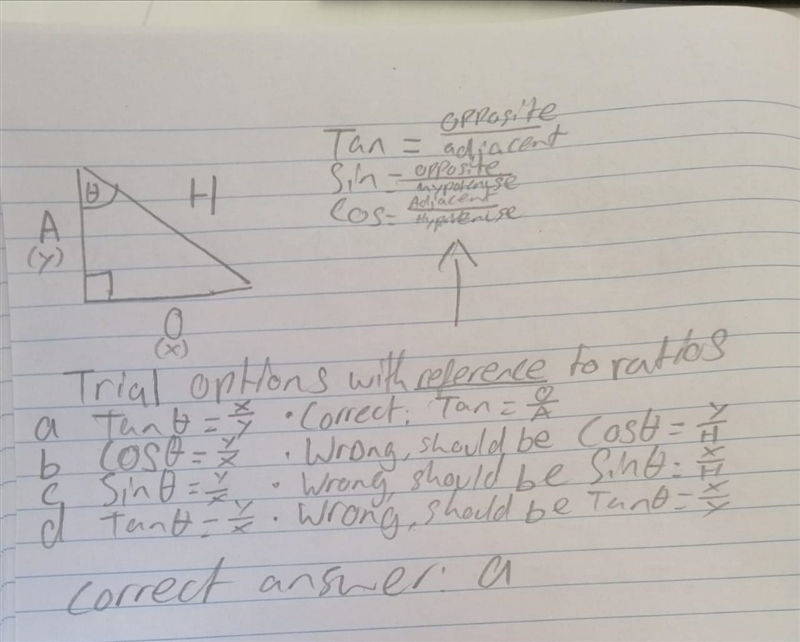 Tan = opposite / adjacent
Sin = opposite / hypotenuse
Cos = Adjacent / Hypotenuse
θ
H
A
(y)
O
(x)
Trial options with reference to ratios
a Tanθ = x/y · Correct: Tan = O/A
b Cosθ = y/x · Wrong, should be Cosθ = y/H
c Sinθ = y/x · Wrong, should be Sinθ = x/H
d Tanθ = y/x · Wrong, should be Tanθ = x/y
Correct answer: a